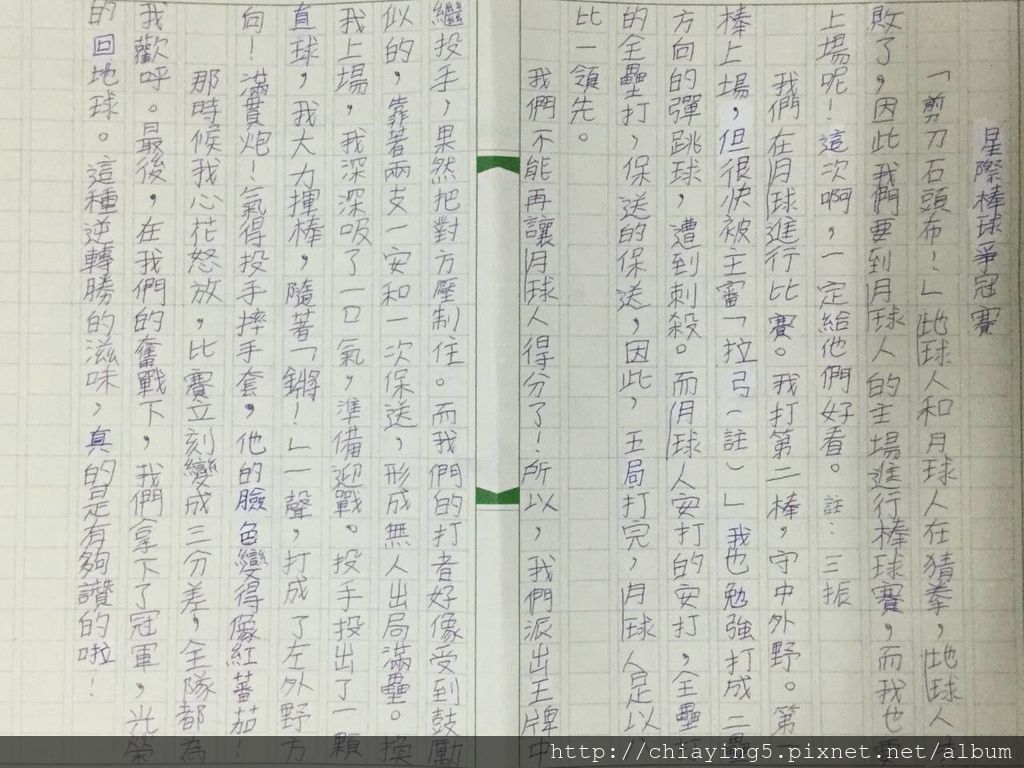 星際棒球爭冠賽
「剪刀石頭布！」地球人和月球人在猜拳，地球人
敗了，因此我們要到月球人的主場進行棒球賽，而我也要
上場呢！這次啊，一定給他們好看。註：三振
我們在月球進行比賽。我打第二棒，守中外野。第一
棒上場，但很快被主審「拉弓（註）」我也勉強打成二壘
方向的彈跳球，遭到刺殺。而月球人安打的安打，全壘打
的全壘打，保送的保送，因此，五局打完，月球人是以
比一領先。
我們不能再讓月球人得分了！所以，我們派出王牌中
繼投手，果然把對方壓制住。而我們的打者好像受到鼓勵
似的，靠著兩支一安和一次保送，形成無人出局滿壘。換
我上場，我深深吸了一口氣，準備迎戰。投手投出了一顆
直球，我大力揮棒，隨著「鏘！」一聲，打成了左外野方
向！滿貫炮！氣得投手摔手套，他的臉色變得像紅蕃茄！
那時候我心花怒放，比賽立刻變成三分差，全隊都為
我歡呼。最後，在我們的奮戰下，我們拿下了冠軍，光榮
的回地球。這種逆轉勝的滋味，真的是有夠讚的啦！
http://chiaying5.pixnet.net/album